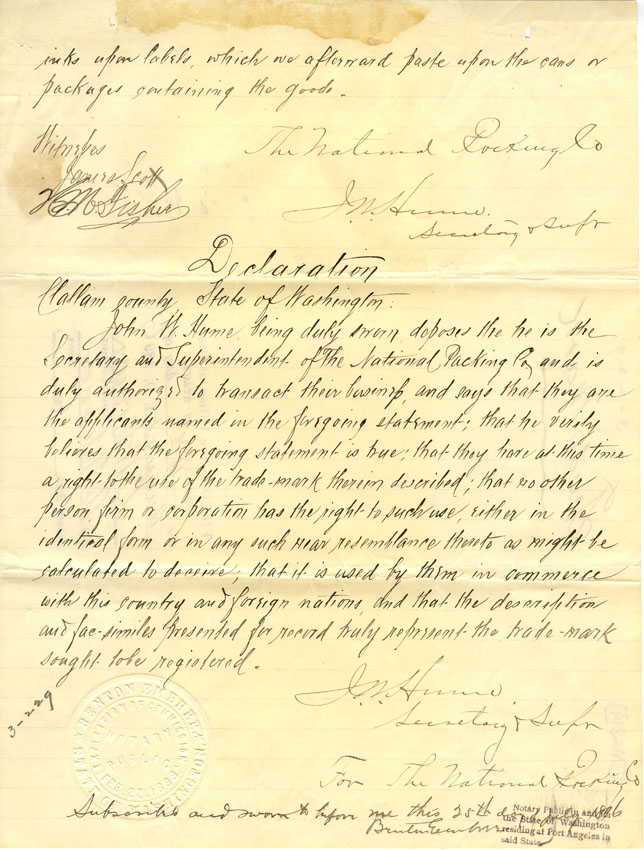 inks upon labels, which we afterward paste upon the cans or
packages containing the goods.
Witnesses
James Scott
Fisher
The National Packing Co
J.W. Hume.
Secretary & Supt
Declaration
Clallam county, State of Washington:
John W. Hume being duly sworn deposes the he is the
Secretary and Superintendent of The National Packing Co, and is
duly authorized to transact their business, and says that they are
the applicants named in the foregoing statement; that he verily
believes that the foregoing statement is true; that they have at this time
a right to the use of the trade-mark therein described; that no other
person firm or corporation has the right to such use, either in the
identical form or in any such near resemblance thereto as might be
calculated to deceive; that it is used by them in commerce
with this country and foreign nations, and that the description
and fac-similes presented for record truly represent the trade-mark
sought to be registered.
3-229
J.W. Hume
Secretary & Supt
For The National Packing Co
NOTARY
PUBLIC
Subscribed and sworn to before me this 25th day 1896
Notary Public in and for
the State of Washington
residing at Port Angeles in
said State